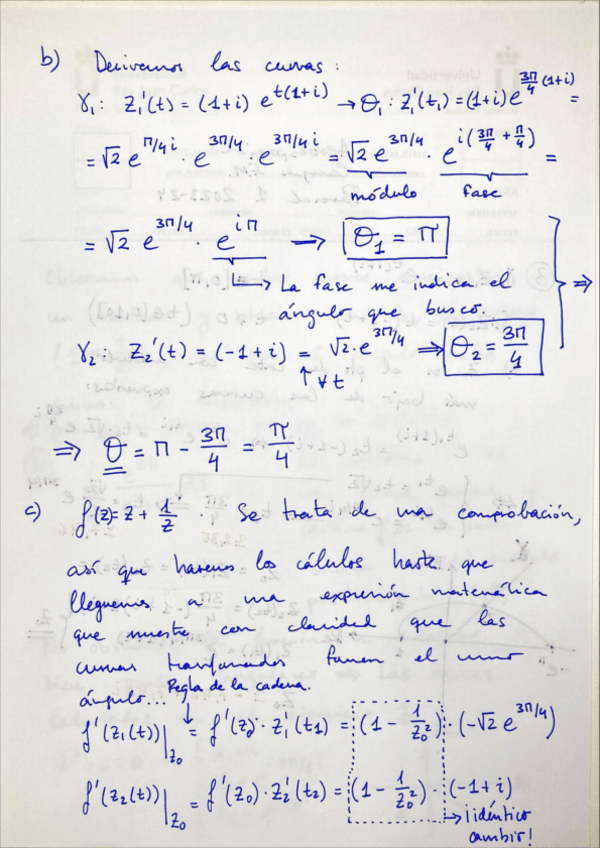 b) Derivamos las curvas:
γ₁: z₁'(t) = (1+i) e^{t(1+i)} → θ₁: z₁'(t₁) = (1+i) e^{3π/4 (1+i)} =
= √2 e^{π/4 i} · e^{3π/4} · e^{3π/4 i} = √2 e^{3π/4} · e^{i(3π/4 + π/4)} =
módulo fase
= √2 e^{3π/4} · e^{iπ} → θ₁ = π
↳ La fase me indica el
ángulo que busco. ⇒
γ₂: z₂'(t) = (-1+i) = √2 · e^{3π/4} ⇒ θ₂ = 3π/4
↑ ∀t
⇒ θ = π - 3π/4 = π/4
c) f(z) = z + 1/z . Se trata de una comprobación,
así que haremos los cálculos hasta que
lleguemos a una expresión matemática
que muestre con claridad que las
curvas transformadas forman el mismo
ángulo... Regla de la cadena.
f'(z₁(t))|_{z₀} = f'(z₀) · z₁'(t₁) = (1 - 1/z₀²) · (-√2 e^{3π/4})
f'(z₂(t))|_{z₀} = f'(z₀) · z₂'(t₂) = (1 - 1/z₀²) · (-1+i)
→ ¡idéntico
cambio!